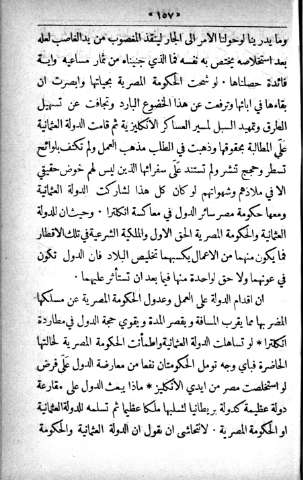 ﴿١٥٧﴾
وما يدرينا لو حولنا الامر الى الجار لينقذ المغصوب من يد الغاصب لعله
بعد استخلاصه يختص به نفسه فما الذي جنيناه من ثمار مساعيه واية
فائدة حصلناها * لو شحت الحكومة المصرية بحياتها وابصرت ان
بقاءها في ابائها وترفعت عن هذا الخضوع البارد وتجافت عن تسهيل
الطرق وتمهيد السبل لمسير العساكر الانكليزية ثم قامت الدولة العثمانية
على المطالبة بحقوقها وذهبت في الطلب مذهب العمل ولم تكف بلوائح
تسطر وحجج تنشر ولم تستند على سفرائها الذين ليس لهم خوض حقيقي
الا في ملاذهم وشهواتهم لو كان كل هذا لشاركت الدولة العثمانية
ومعها حكومة مصر سائر الدول في معاكسة انكلترا * وحيث ان للدولة
العثمانية والحكومة المصرية الحق الاول والملكية الشرعية في تلك الاقطار
فما يكون منهما من الاعمال يكسبهما تخليص البلاد فان الدول تكون
في عونهما ولا حق لواحدة منها فيما بعد ان تستأثر عليهما *
ان اقدام الدولة على العمل وعدول الحكومة المصرية عن مسلكها
المضر بها مما يقرب المسافة ويقصر المدة ويقوي حجة الدول في مطاردة
انكلترا * لو تساهلت الدولة العثمانية واطمأنت الحكومة المصرية لحالتها
الحاضرة فباي وجه تومل الحكومتان نفعا من معارضة الدول على فرض
لو استخلصت مصر من ايدي الانكليز * ماذا يبعث الدول على مقارعة
دولة عظيمة كدولة بريطانيا لتسلبها ملكا عظيما ثم تسلمه للدولة العثمانية
او الحكومة المصرية * لا نتحاشى ان نقول ان الدولة العثمانية والحكومة